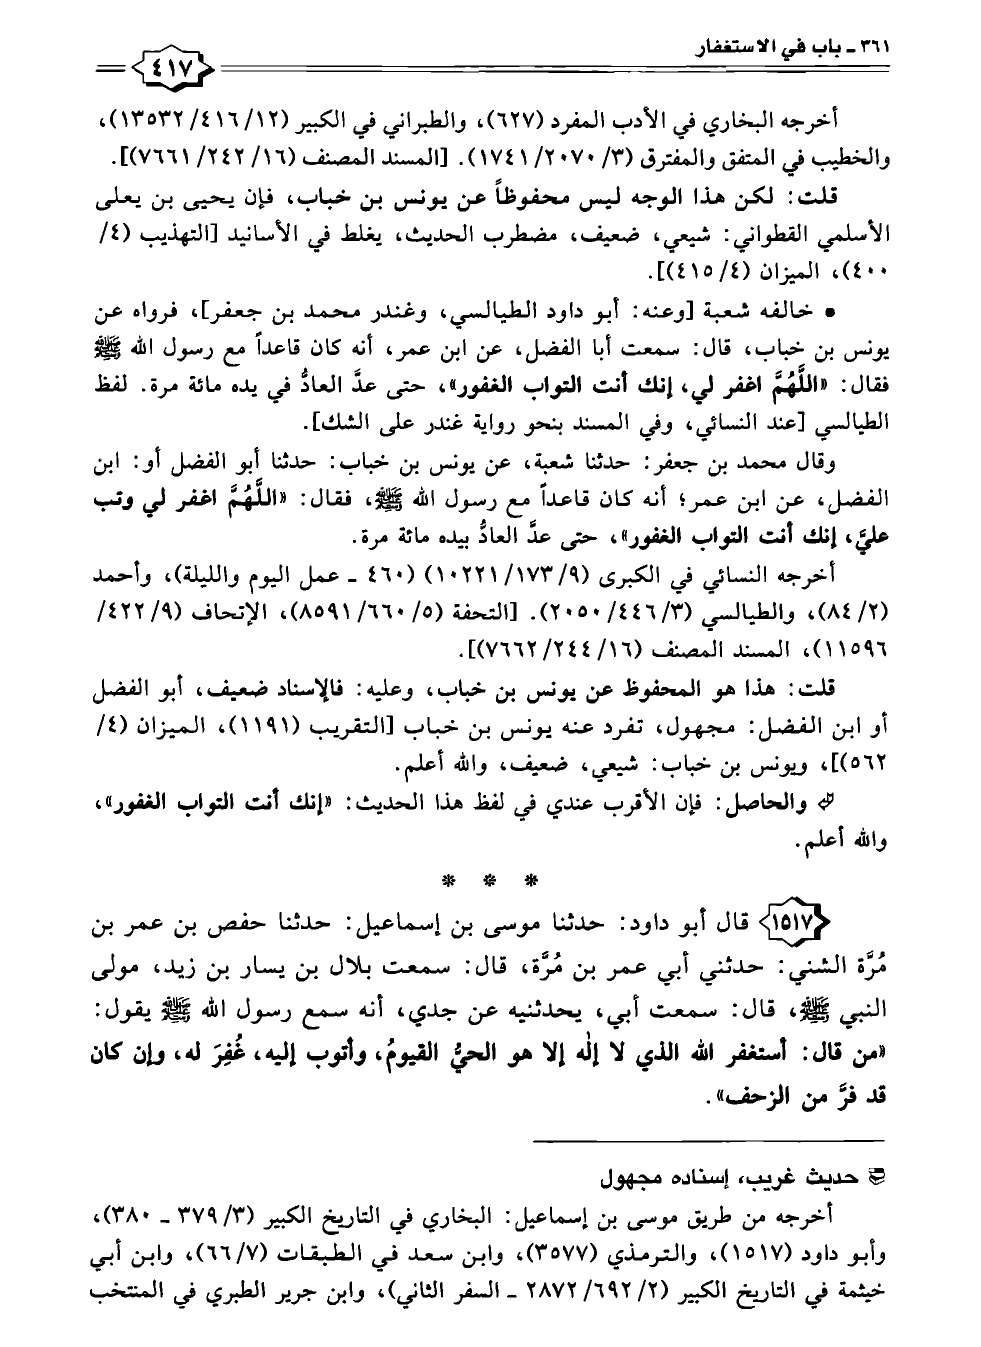 ٣٦١ - باب في الاستغفار
٤١٧
أخرجه البخاري في الأدب المفرد (٦٢٧)، والطبراني في الكبير (١٢/ ٤١٦/ ١٣٥٣٢)،
والخطيب في المتفق والمفترق (٣/ ٢٠٧٠/ ١٧٤١). [المسند المصنف (١٦/ ٢٤٢/ ٧٦٦١)].
قلت: لكن هذا الوجه ليس محفوظاً عن يونس بن خباب، فإن يحيى بن يعلى
الأسلمي القطواني: شيعي، ضعيف، مضطرب الحديث، يغلط في الأسانيد [التهذيب (٤/
٤٠٠)، الميزان (٤/ ٤١٥)].
• خالفه شعبة [وعنه: أبو داود الطيالسي، وغندر محمد بن جعفر]، فرواه عن
يونس بن خباب، قال: سمعت أبا الفضل، عن ابن عمر، أنه كان قاعداً مع رسول الله ﷺ
فقال: «اللَّهُمَّ اغفر لي، إنك أنت التواب الغفور»، حتى عدَّ العادُّ في يده مائة مرة. لفظ
الطيالسي [عند النسائي، وفي المسند بنحو رواية غندر على الشك].
وقال محمد بن جعفر: حدثنا شعبة، عن يونس بن خباب: حدثنا أبو الفضل أو: ابن
الفضل، عن ابن عمر؛ أنه كان قاعداً مع رسول الله ﷺ، فقال: «اللَّهُمَّ اغفر لي وتب
عليَّ، إنك أنت التواب الغفور»، حتى عدَّ العادُّ بيده مائة مرة.
أخرجه النسائي في الكبرى (٩/ ١٧٣/ ١٠٢٢١) (٤٦٠ - عمل اليوم والليلة)، وأحمد
(٢/ ٨٤)، والطيالسي (٣/ ٤٤٦/ ٢٠٥٠). [التحفة (٥/ ٦٦٠/ ٨٥٩١)، الإتحاف (٩/ ٤٢٢/
١١٥٩٦)، المسند المصنف (١٦/ ٢٤٤/ ٧٦٦٢)].
قلت: هذا هو المحفوظ عن يونس بن خباب، وعليه: فالإسناد ضعيف، أبو الفضل
أو ابن الفضل: مجهول، تفرد عنه يونس بن خباب [التقريب (١١٩١)، الميزان (٤/
٥٦٢)]، ويونس بن خباب: شيعي، ضعيف، والله أعلم.
والحاصل: فإن الأقرب عندي في لفظ هذا الحديث: «إنك أنت التواب الغفور»،
والله أعلم.
* * *
١٥١٧ قال أبو داود: حدثنا موسى بن إسماعيل: حدثنا حفص بن عمر بن
مُرَّة الشني: حدثني أبي عمر بن مُرَّة، قال: سمعت بلال بن يسار بن زيد، مولى
النبي ﷺ، قال: سمعت أبي، يحدثنيه عن جدي، أنه سمع رسول الله ﷺ يقول:
«من قال: أستغفر الله الذي لا إلٰه إلا هو الحيُّ القيومُ، وأتوب إليه، غُفِرَ له، وإن كان
قد فرَّ من الزحف».
حديث غريب، إسناده مجهول
أخرجه من طريق موسى بن إسماعيل: البخاري في التاريخ الكبير (٣/ ٣٧٩ - ٣٨٠)،
وأبو داود (١٥١٧)، والترمذي (٣٥٧٧)، وابن سعد في الطبقات (٧/ ٦٦)، وابن أبي
خيثمة في التاريخ الكبير (٢/ ٦٩٢/ ٢٨٧٢ - السفر الثاني)، وابن جرير الطبري في المنتخب